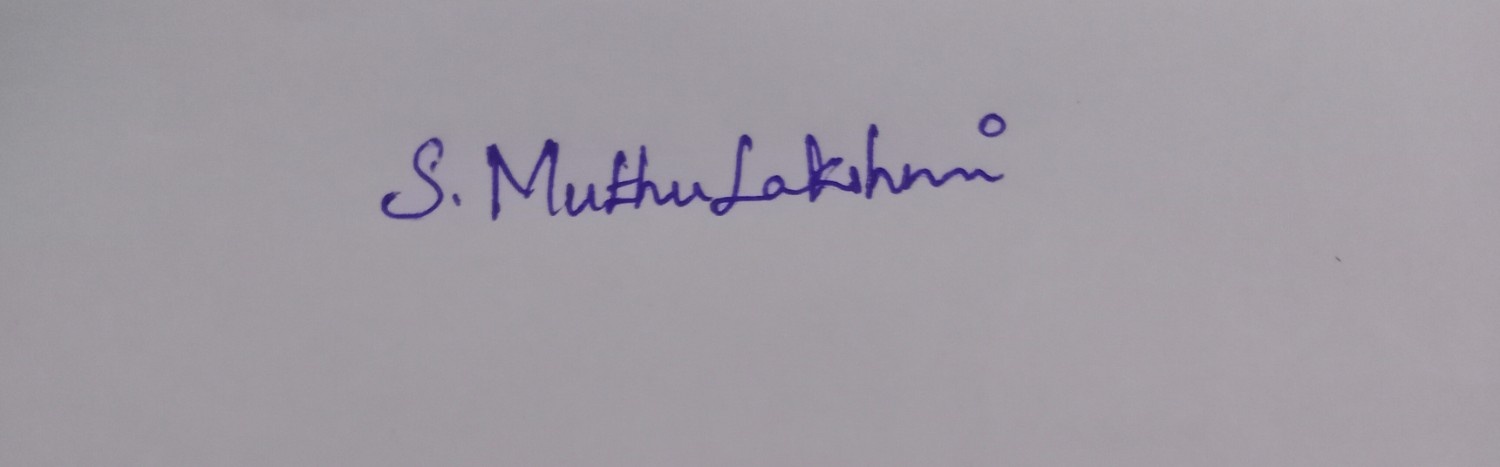 S. MuthuLakshmi